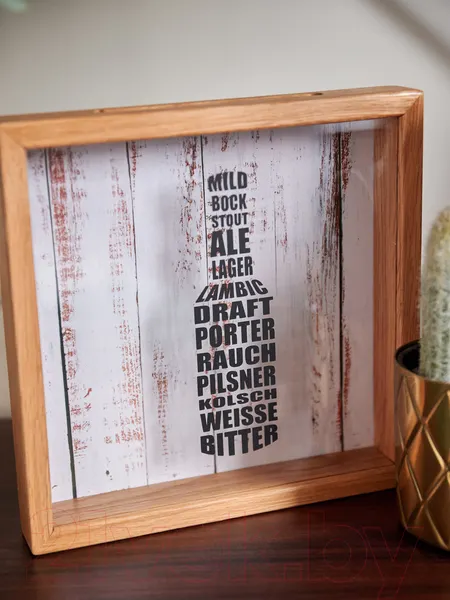 MILD
BOCK
STOUT
ALE
LAGER
LAMBIC
DRAFT
PORTER
RAUCH
PILSNER
KOLSCH
WEISSE
BITTER